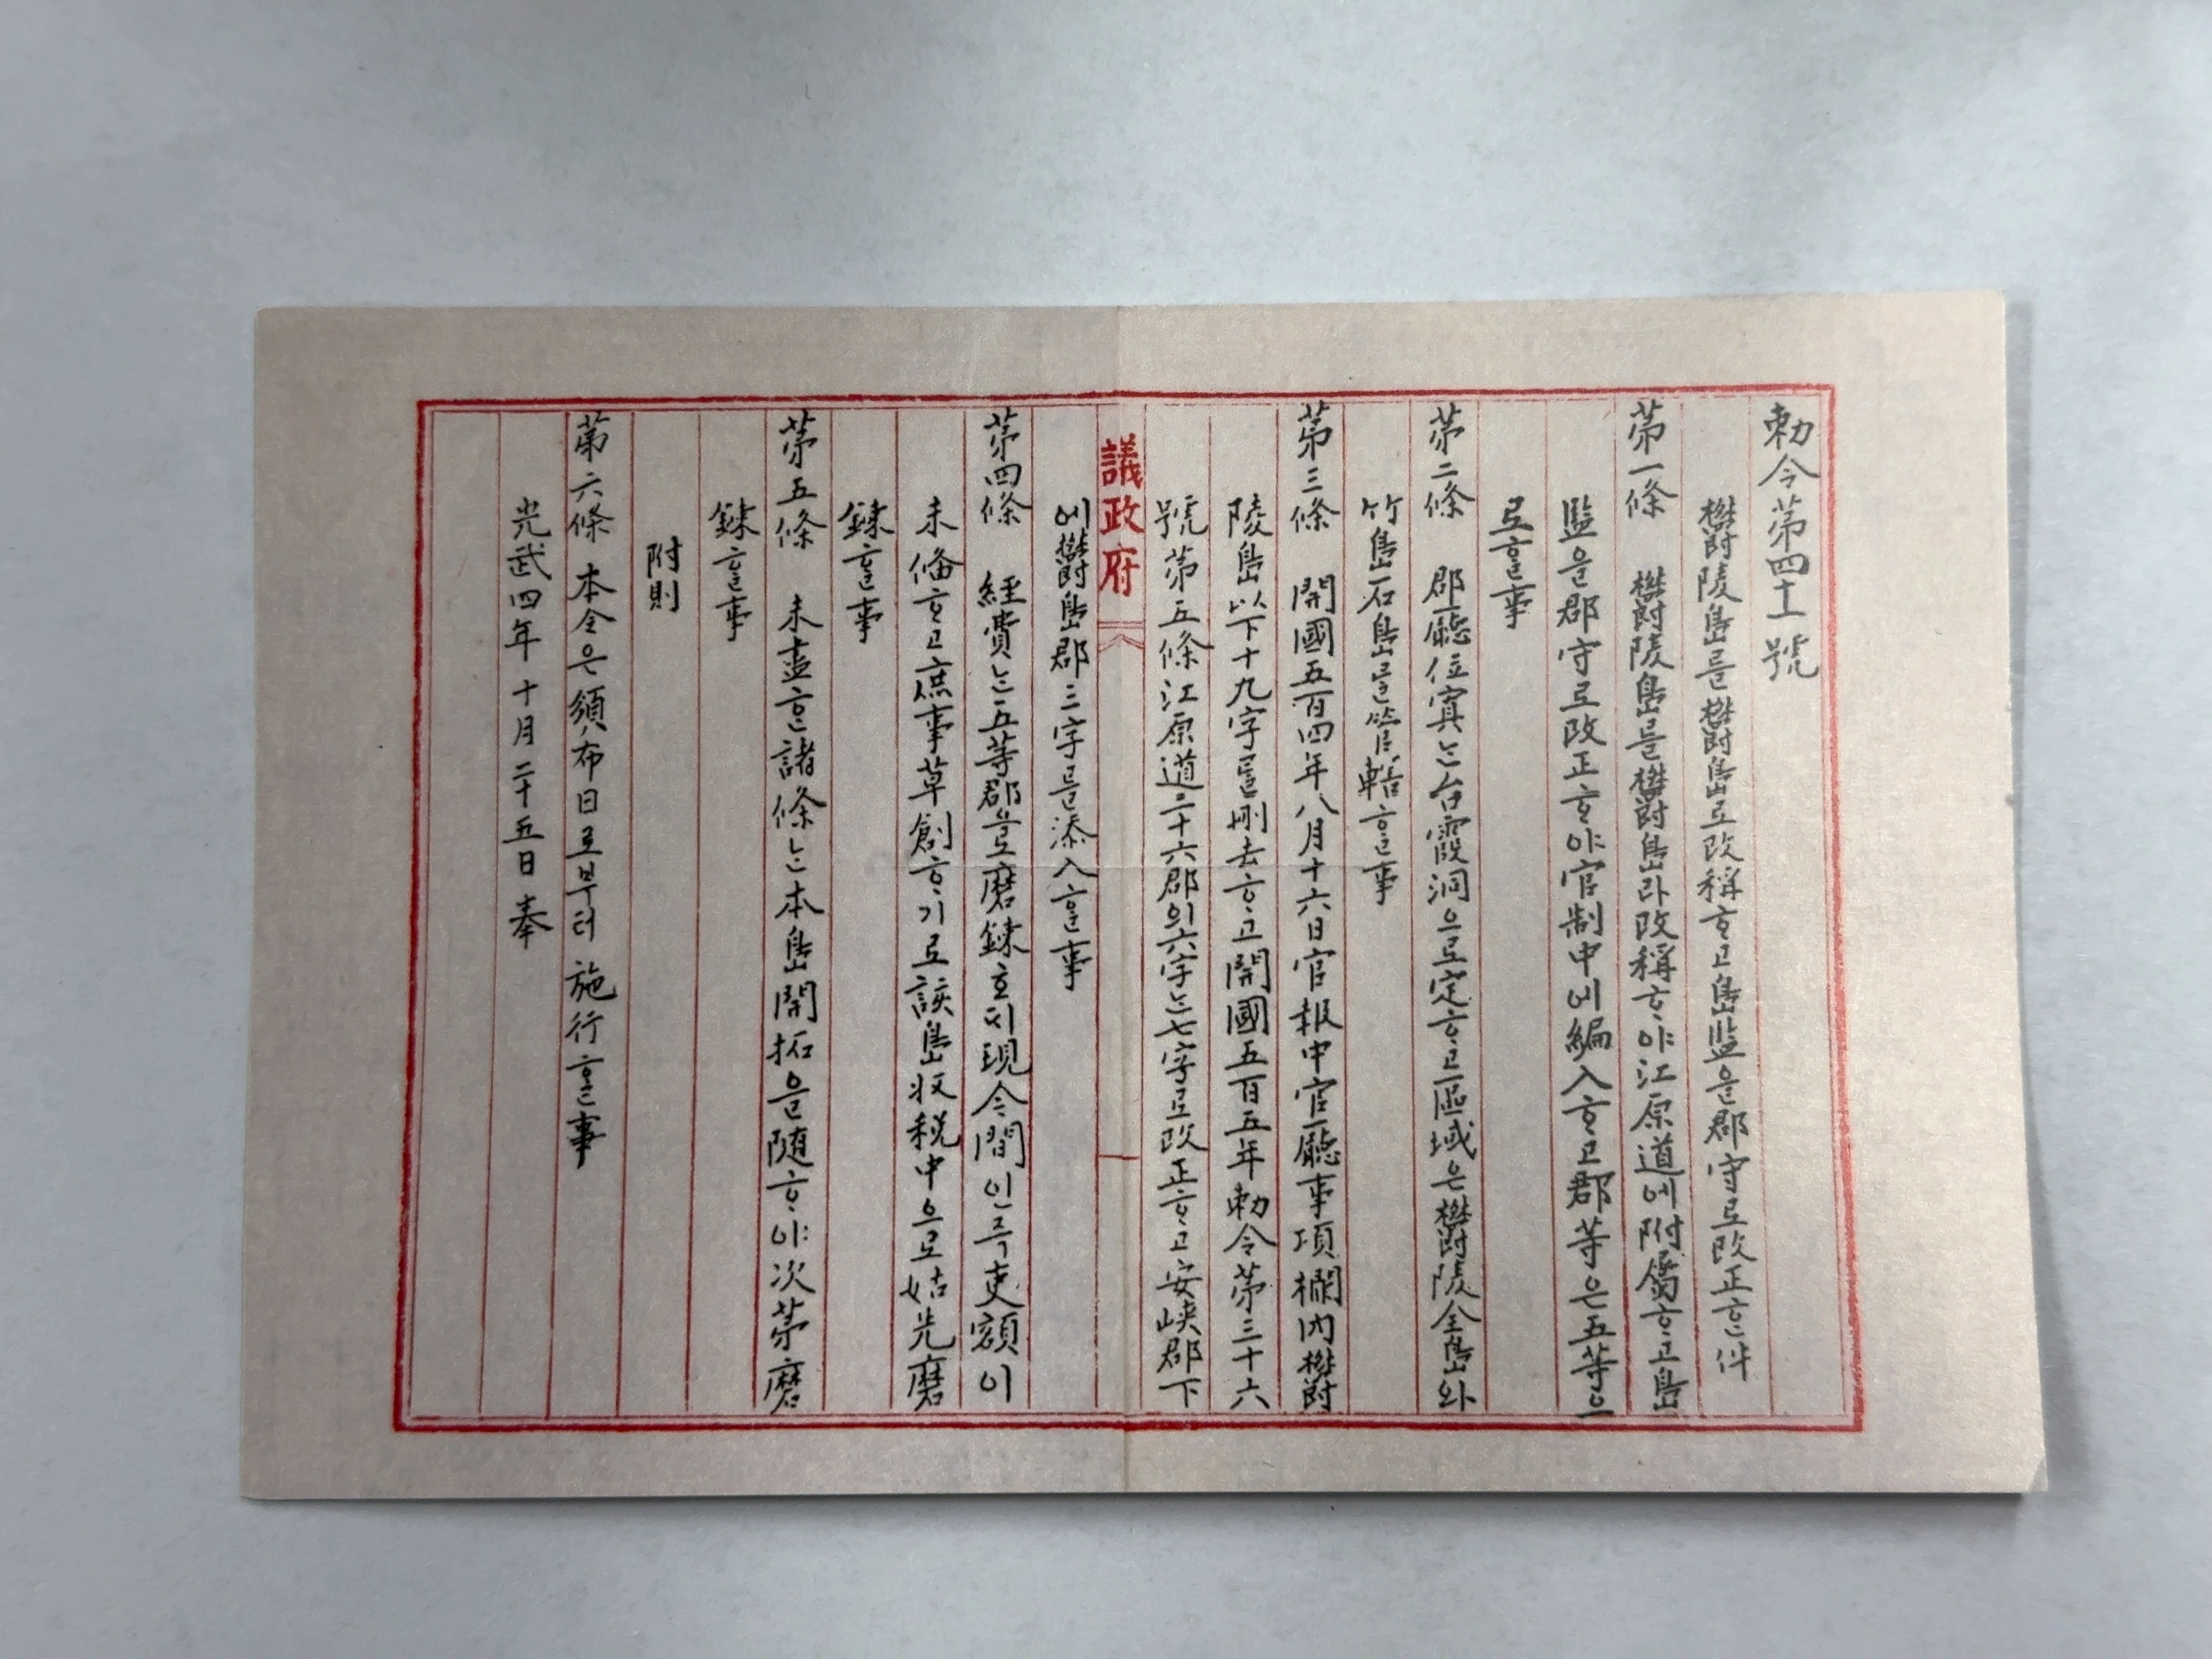 勅令第四十一號
欝陵島를欝島로改稱ᄒᆞ고島監을郡守로改正ᄒᆞᆫ件
第一條 欝陵島를欝島라改稱ᄒᆞ야江原道에附屬ᄒᆞ고島
監을郡守로改正ᄒᆞ야官制中에編入ᄒᆞ고郡等은五等으
로ᄒᆞᆯ事
第二條 郡廳位寘ᄂᆞᆫ台霞洞으로定ᄒᆞ고區域은欝陵全島와
竹島石島를管轄ᄒᆞᆯ事
第三條 開國五百四年八月十六日官報中官廳事項欄內欝
陵島以下十九字를刪去ᄒᆞ고開國五百五年勅令第三十六
號第五條江原道二十六郡의六字ᄂᆞᆫ七字로改正ᄒᆞ고安峽郡下
議政府
에欝島郡三字를添入ᄒᆞᆯ事
第四條 經費ᄂᆞᆫ五等郡으로磨鍊호ᄃᆡ現今間인즉吏額이
未備ᄒᆞ고庶事草創ᄒᆞ기로該島收稅中으로姑先磨
鍊ᄒᆞᆯ事
第五條 未盡ᄒᆞᆫ諸條ᄂᆞᆫ本島開拓을隨ᄒᆞ야次第磨
鍊ᄒᆞᆯ事
附則
第六條 本令은頒布日로부터施行ᄒᆞᆯ事
光武四年十月二十五日奉